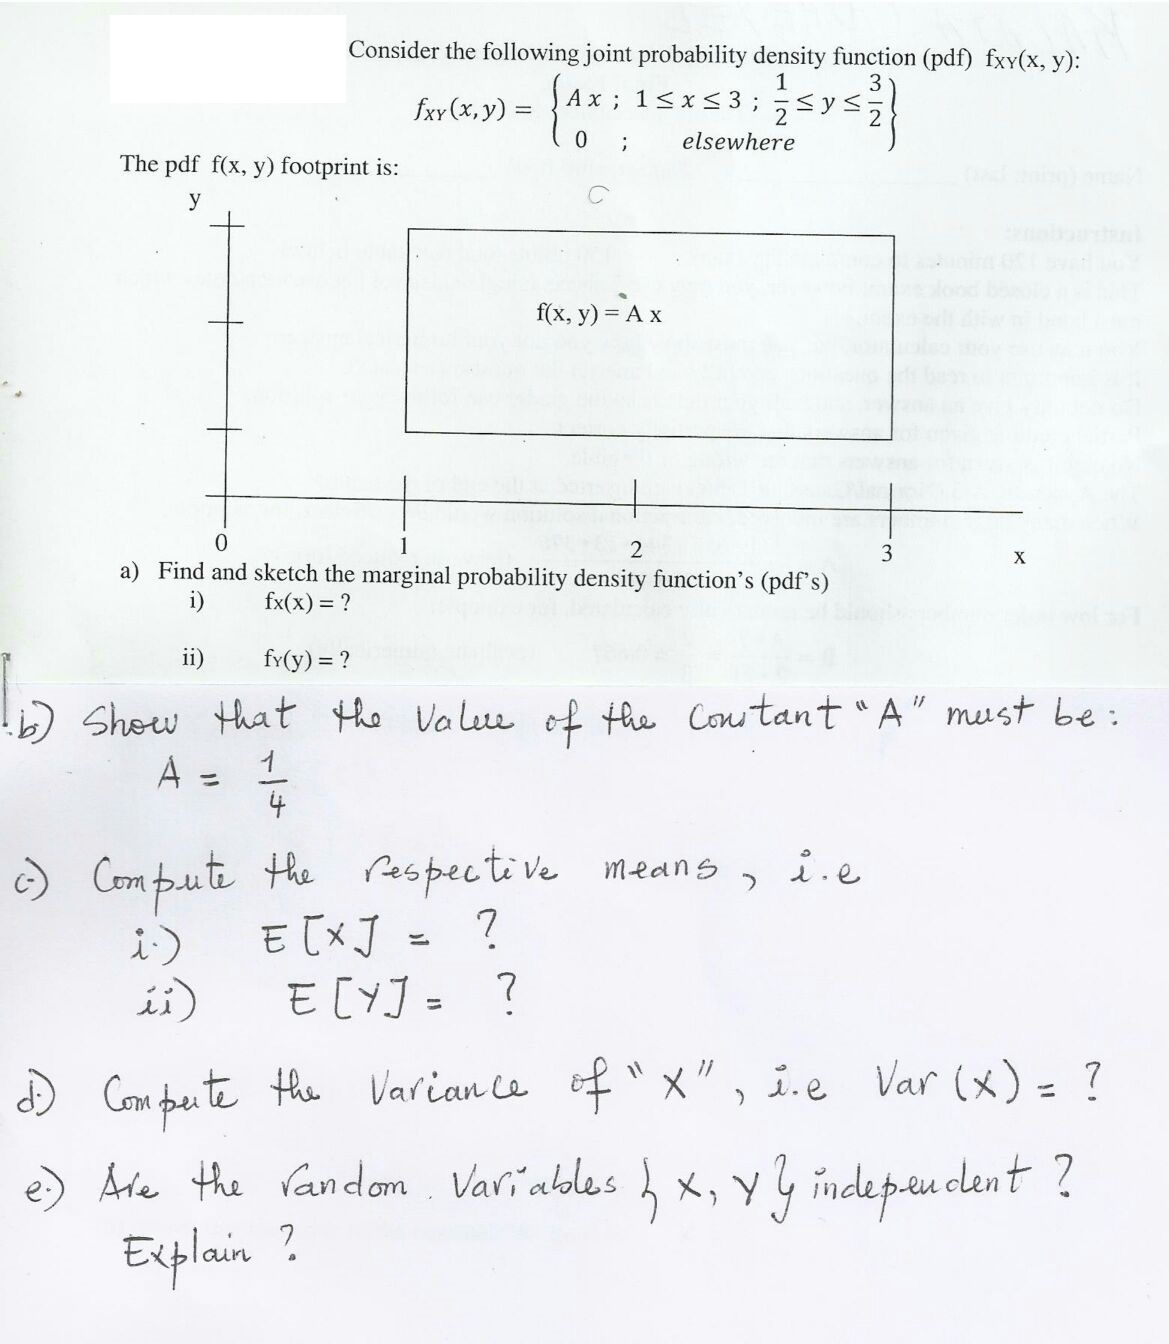 Consider the following joint probability density function (pdf) fXY(x, y):
fXY(x,y) = { A x ; 1 ≤ x ≤ 3 ; 1/2 ≤ y ≤ 3/2 }
0 ; elsewhere
The pdf f(x, y) footprint is:
y
C
f(x, y) = A x
0 1 2 3 x
a) Find and sketch the marginal probability density function's (pdf's)
i) fX(x) = ?
ii) fY(y) = ?
b) Show that the Value of the Constant "A" must be:
A = 1/4
c) Compute the respective means, i.e
i) E[X] = ?
ii) E[Y] = ?
d) Compute the Variance of "X", i.e Var (X) = ?
e) Are the random Variables {X, Y} independent?
Explain?